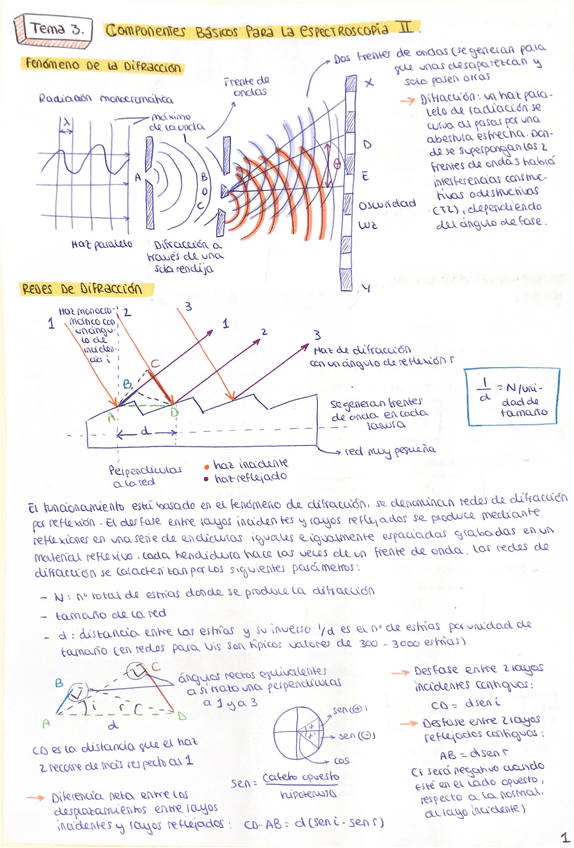 Tema 3.
Componentes Básicos Para la espectroscopia II.
Fenómeno de la Difracción
Frente de
ondas
Dos frentes de ondas (se generan para
que unas desaparezcan y
solo pasen otras
Radiación monocromática
máximo
de la onda
λ
A
B
O
C
θ
X
D
E
Oscuridad
Luz
Y
→ Difracción: un haz para-
lelo de radiación se
curva al pasar por una
abertura estrecha. Don-
de se superpongan los 2
frentes de ondas habrá
interferencias construc-
tivas o destructivas
dependiendo
del ángulo de fase.
Haz paralelo
Difracción a
través de una
sola rendija
Redes de Difracción
Haz monocro-
mático con
un ángu-
lo de
inciden-
cia i
1
2
3
1
2
3
Haz de difracción
con un ángulo de reflexión r
A
B
C
D
d
se generan frentes
de onda en cada
→ red muy pequeña
Perpendiculares
a la red
• haz incidente
• haz reflejado
1/d = N/uni-
dad de
tamaño
El funcionamiento está basado en el fenómeno de difracción, se denominan redes de difracción
por reflexión. El desfase entre rayos incidentes y rayos reflejados se produce mediante
reflexiones en una serie de endiduras iguales e igualmente espaciadas grabadas en un
material reflexivo. Cada hendidura hace las veces de un frente de onda. Las redes de
difracción se caracterizan por los siguientes parámetros:
- N: nº total de estrías donde se produce la difracción
- tamaño de la red
- d: distancia entre las estrías y su inverso 1/d es el nº de estrías por unidad de
tamaño (en redes para Vis son típicos valores de 300 - 3000 estrías)
B
C
A
i
r
D
d
ángulos rectos equivalentes
a si trazo una perpendiculares
a 1 y a 3
CD es la distancia que el haz
2 recorre de más respecto al 1
sen(+)
sen(-)
cos
sen = cateto opuesto / hipotenusa
→ Desfase entre 2 rayos
incidentes contiguos:
CD = d sen i
→ Desfase entre 2 rayos
reflejados contiguos:
AB = d sen r
(r será negativo cuando
esté en el lado opuesto,
respecto a la normal,
al rayo incidente)
→ Diferencia neta entre los
desplazamientos entre rayos
incidentes y rayos reflejados: CD-AB = d(sen i - sen r)
1